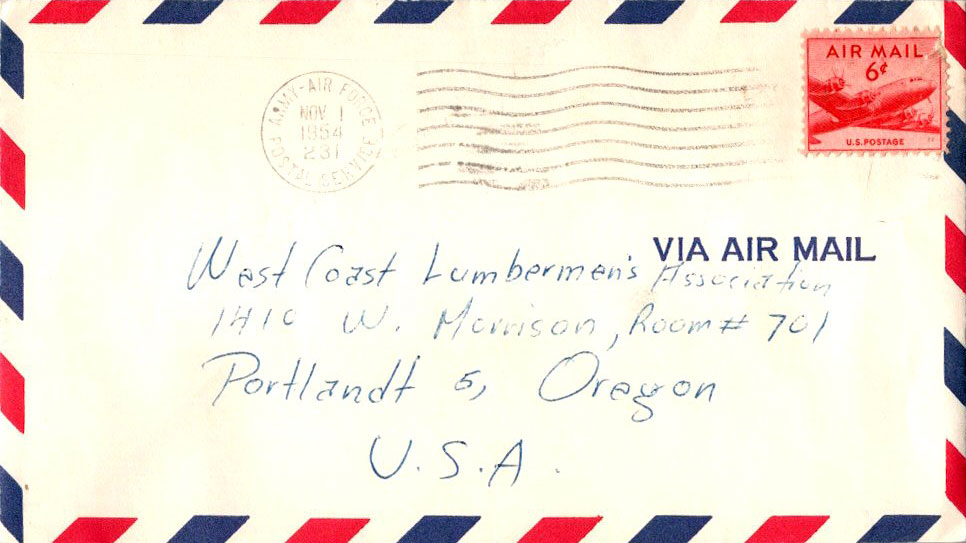 ARMY-AIR FORCE
NOV 1
1954
231
POSTAL SERVICE
AIR MAIL
6¢
U.S. POSTAGE
VIA AIR MAIL
West Coast Lumbermen's Association
1410 W. Morrison, Room # 701
Portlandt 5, Oregon
U.S.A.